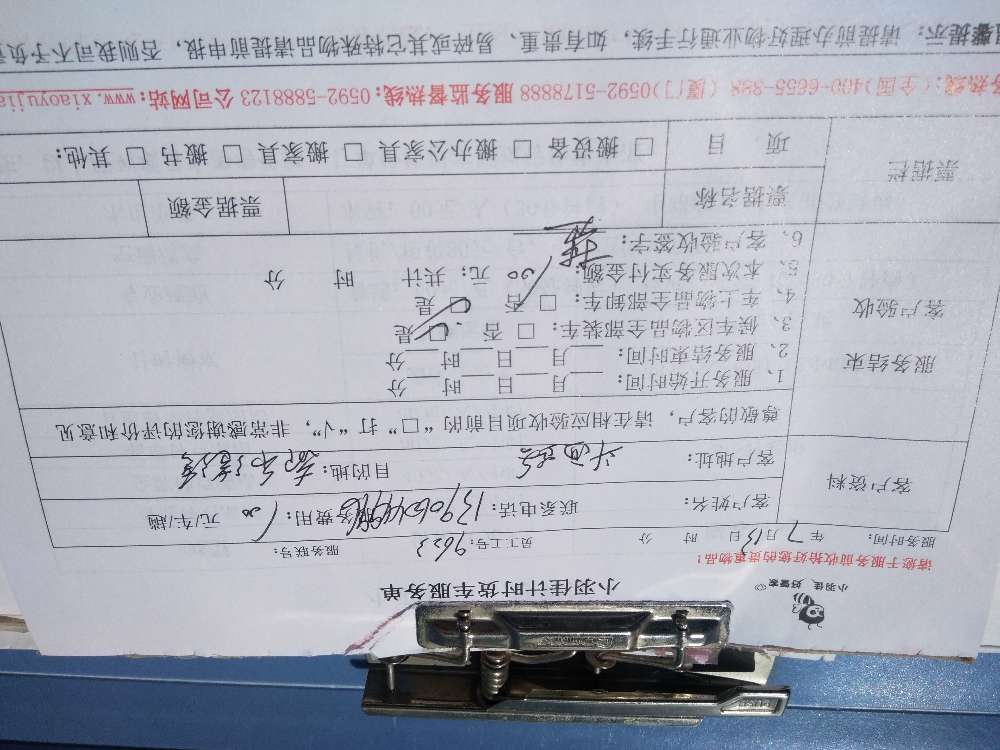 小羽佳 好管家
小羽佳计时货车服务单
请您于服务前收拾好您的贵重物品！
服务时间： 年 7 月 13 日 时 分 员工工号：9623 服务联号：
客户资料
客户姓名： 联系电话： 服务费用：100 元/车/趟
客户地址： 目的地：
尊敬的客户，请在相应验收项目前的“□”打“√”，非常感谢您的评价和意见
服务结束
客户验收
1、服务开始时间：___月___日___时___分
2、服务结束时间：___月___日___时___分
3、候车区物品全部装车：□ 否、☑ 是
4、车上物品全部卸车：□ 否 ☑ 是
5、本次服务实付金额：100 元；共计 时 分
6、客户验收签字：
票据栏
票据名称 票据金额
项 目 □ 搬设备 □ 搬办公家具 □ 搬家具 □ 搬书 □ 其他：
务热线：(全国)400-6655-388 (厦门)0592-5178888 服务监督热线：0592-5888123 公司网站：www.xiaoyujia
提示：请提前办理好物业通行手续，如有贵重、易碎或其它特殊物品请提前申报，否则我司不予负